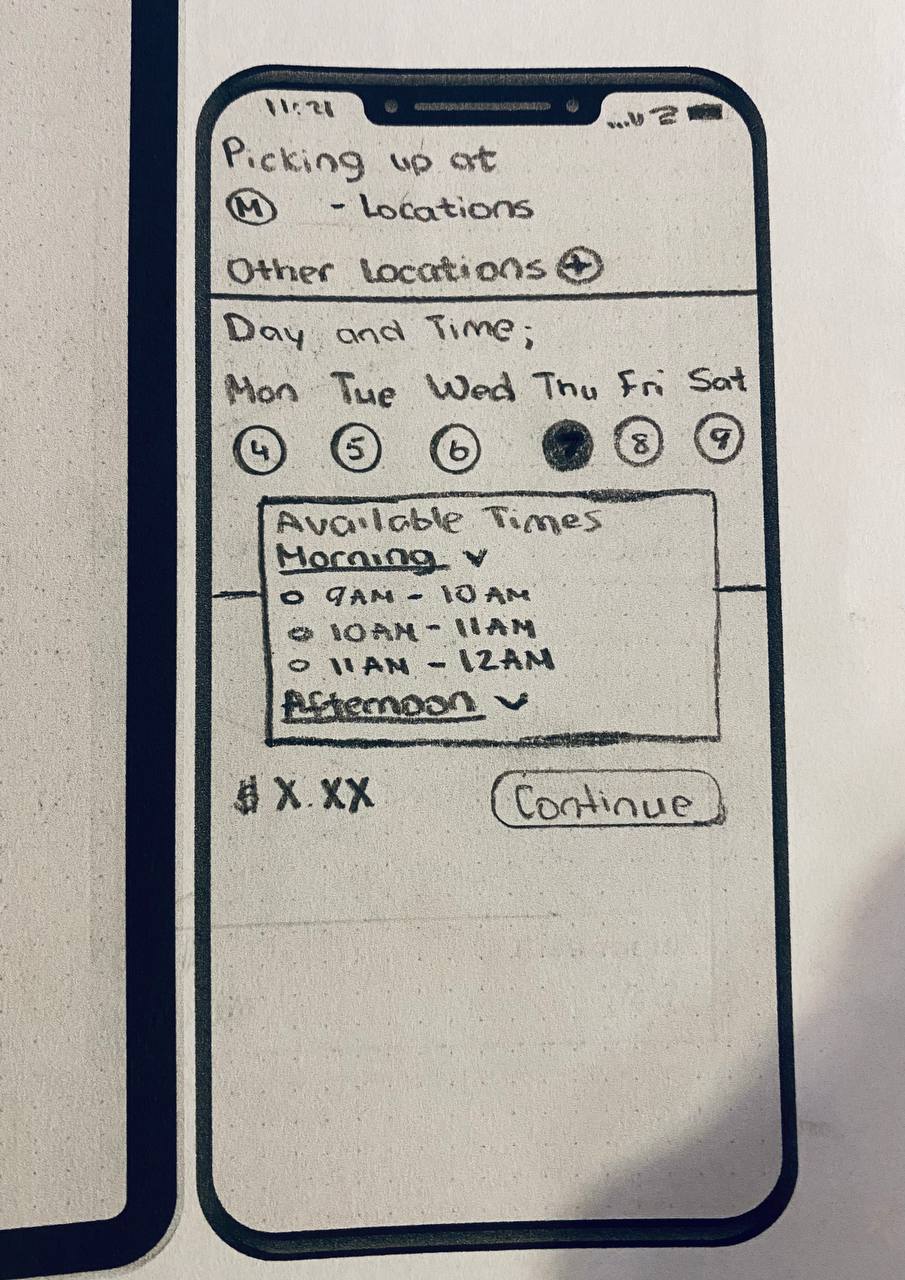 11:21
Picking up at
M - Locations
Other Locations +
Day and Time;
Mon Tue Wed Thu Fri Sat
4 5 6 7 8 9
Available Times
Morning
9AM - 10AM
10AM - 11AM
11AM - 12AM
Afternoon
$ X.XX
Continue